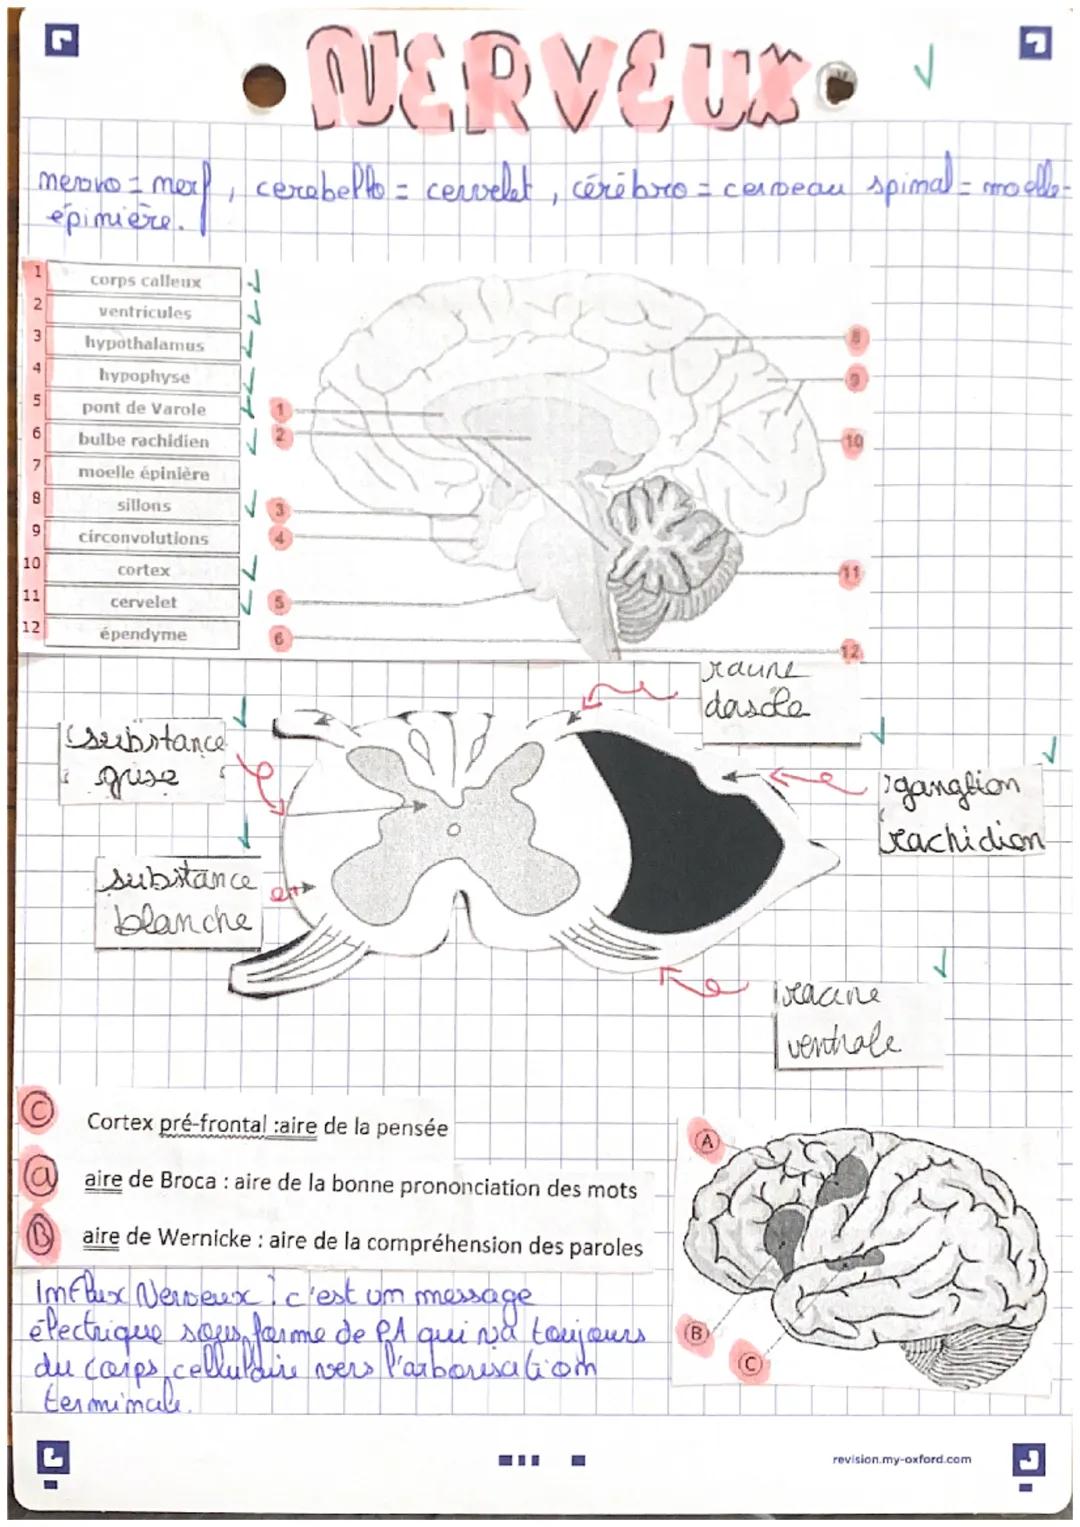 NERVEUX
nervo = nerf, cerebello = cervelet, cérébro = cerveau spinal = moelle-
épinière.
1 corps calleux
2 ventricules
3 hypothalamus
4 hypophyse
5 pont de Varole
6 bulbe rachidien
7 moelle épinière
8 sillons
9 circonvolutions
10 cortex
11 cervelet
12 épendyme
1
2
3
4
5
6
8
9
10
11
12
substance
grise
substance
blanche
racine
dorsale
ganglion
rachidien
racine
ventrale
C Cortex pré-frontal :aire de la pensée
a aire de Broca : aire de la bonne prononciation des mots
B aire de Wernicke : aire de la compréhension des paroles
A
B
C
Influx Nerveux : c'est um message
électrique sous forme de PA qui va toujours
du corps cellulaire vers l'arborisation
terminale.
revision.my-oxford.com